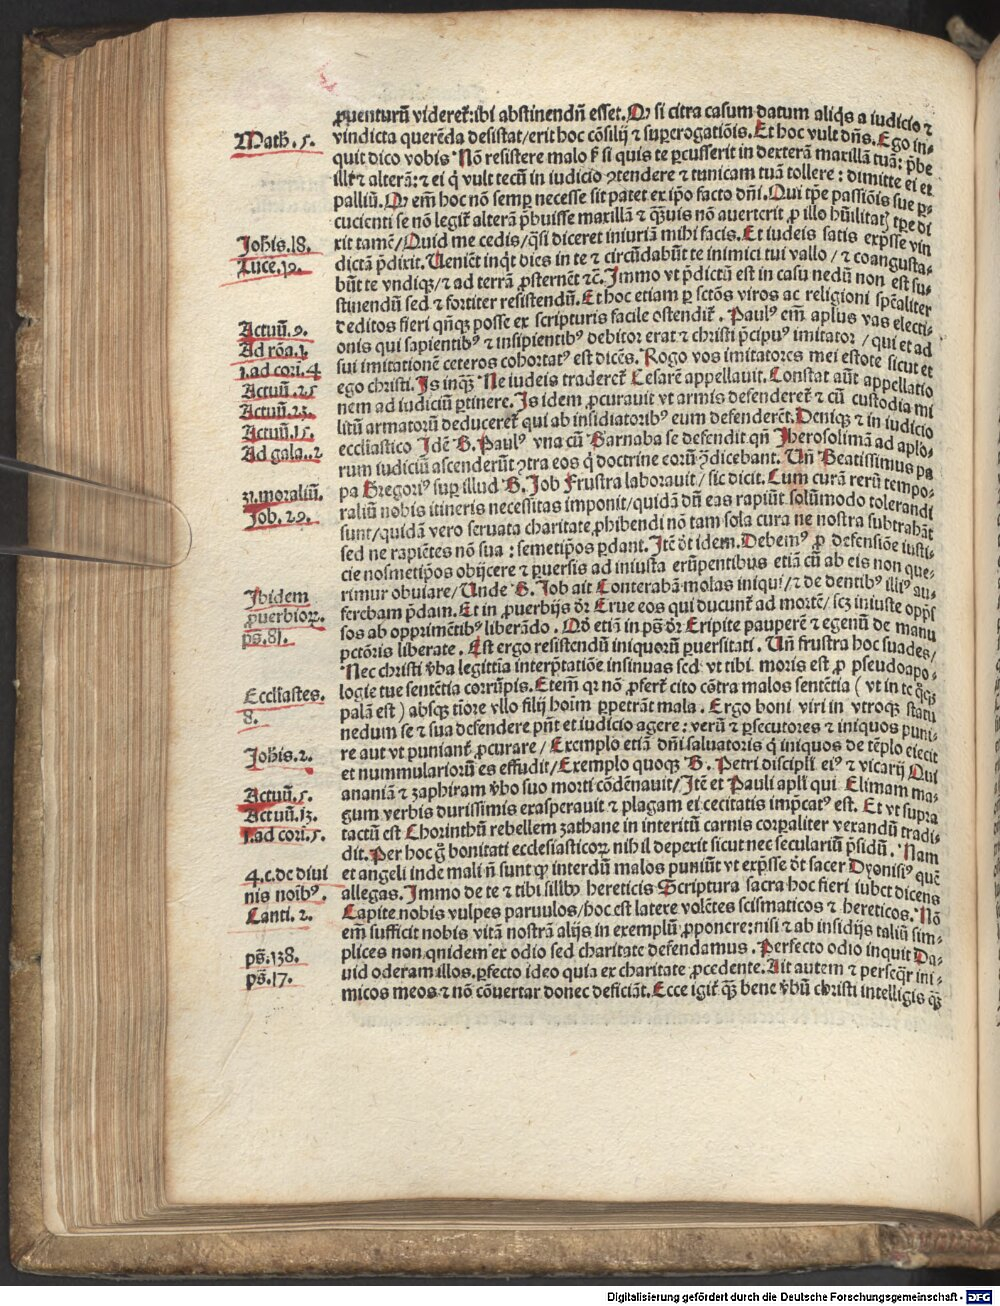 ꝓuenturū videret᷑: ibi abstinendū esset. Ꝙ si citra casum datum aliq̇s a iudicio ⁊
Math. 5.
vindicta querēda desistat/ erit hoc cōsilij ⁊ suꝑerogatiōis. Et hoc vult dn̄s. Ego in-
quit dico vobis Nō resistere malo ẜ si quis te ꝑcusserit in dexterā maxillā tuā: p̄be
illi ⁊ alterā: ⁊ ei q̇ vult tecū in iudicio ꝯtendere ⁊ tunicam tuā tollere: dimitte ei et
palliū. Ꝙ em̄ hoc nō semꝑ necesse sit patet ex ip̄o facto dn̄i. Qui tp̄e passiōis sue ꝑ-
cucienti se nō legit᷑ alterā p̄buisse maxillā ⁊ qͣuis nō auerterit
Johis. 18.
xit tamē/ Quid me cedis/ qͣsi diceret iniuriā mihi facis. Et iudeis satis exp̄sse vin
Luce. 19.
dictā p̄dixit. Uenient inqͥt dies in te ⁊ circūdabūt te inimici tui vallo/ ⁊ coangusta-
būt te vndiqꝫ/ ⁊ ad terrā ꝓsternēt ⁊c̄. Immo vt p̄dictū est in casu nedū non est su-
stinendū sed ⁊ fortiter resistendū. Et hoc etiam ꝑ sctōs viros ac religioni sp̄ealiter
Actuū. 9.
deditos fieri qn̄qꝫ posse ex scripturis facile ostendit᷑. Paulꝰ em̄ aplus vas electi-
Ad rōa. 1.
onis qui sapientibꝰ ⁊ insipientibꝰ debitor erat ⁊ christi p̄cipuꝰ imitator/ qui et ad
1. ad cori. 4
sui imitationē ceteros cohortatꝰ est dicēs. Rogo vos imitatores mei estote sicut et
Actuū. 25
ego christi. Is inqͣꝫ Ne iudeis traderet᷑ Cesarē appellauit. Constat aūt appellatio
Actuū. 23.
nem ad iudiciū ꝑtinere. Is idem ꝓcurauit vt armis defenderet᷑ ⁊ cū custodia mi
Actuū. 15.
litū armatorū deduceret᷑ qui ab insidiatoribꝰ eum defenderēt. Deniqꝫ ⁊ in iudicio
Ad gala. 2
eccl̄iastico Idē B. Paulꝰ vna cū Barnaba se defendit qn̄ Iherosolimā ad aplo-
rum iudiciū ascenderūt ꝯtra eos q̇ doctrine eorū ꝯ̄dicebant. Un̄ Beatissimus pa
31. moraliū.
pa Gregoriꝰ suꝑ illud B. Job Frustra laborauit/ sic dicit. Cum curā rerū tempo-
Job. 29.
raliū nobis itineris necessitas imponit/ quidā dū eas rapiūt solūmodo tolerandi
sunt/ quidā vero seruata charitate ꝓhibendi nō tam sola cura ne nostra subtrahāt
sed ne rapiētes nō sua: semetip̄os ꝑdant. Itē ōt idem. Debemꝰ ꝓ defensiōe iusti-
cie nosmetip̄os obijcere ⁊ ꝑuersis ad iniusta erūpentibus etiā cū ab eis non que-
Ibidem
rimur obuiare/ Unde B. Job ait Conterabā molas iniqui/ ⁊ de dentibꝰ illiꝰ au-
ꝓuerbioꝝ.
ferebam p̄dam. Et in ꝓuerbijs dr̄ Erue eos qui ducunt᷑ ad mortē/ scꝫ iniuste opp̄s
ps. 81.
sos ab opprimētibꝰ liberādo. Qd̄ etiā in ps̄ dr̄ Eripite pauperē ⁊ egenū de manu
pctōris liberate. Est ergo resistendū iniquorū ꝑuersitati. Un̄ frustra hoc suades/
Nec christi v̄ba legittīa interp̄tatiōe insinuas sed vt tibi moris est ꝓ pseudoapo-
Eccl̄iastes.
logie tue sentētia corrūpis. Etem̄ qꝛ nō ꝓfert᷑ cito cōtra malos sentētia (vt in te qͦqꝫ
8.
palā est) absqꝫ tiōre vllo filij hoīm ꝑpetrāt mala. Ergo boni viri in vtroqꝫ statu
nedum se ⁊ sua defendere pn̄t et iudicio agere: verū ⁊ ꝑsecutores ⁊ iniquos puni-
Johis. 2.
re aut vt puniant᷑ ꝓcurare/ Exemplo etiā dn̄i saluatoris q̇ iniquos de tēplo eiecit
et nummulariorū es effudit/ Exemplo quoqꝫ B. Petri discipli eiꝰ ⁊ vicarij Qui
Actuū. 5.
ananiā ⁊ zaphiram v̄bo suo morti cōdēnauit/ Itē et Pauli apl̄i qui Elimam ma-
Actuū. 13.
gum verbis durissimis exasperauit ⁊ plagam ei cecitatis imp̄catꝰ est. Et vt supra
1. ad cori. 5.
tactū est Chorinthū rebellem zathane in interitū carnis corꝑaliter vexandū tradi-
dit. Per hoc g̊ bonitati ecclesiasticoꝝ nihil deperit sicut nec seculariū p̄sidū. Nam
4. c. de diui
et angeli inde mali n̄ sunt qꝫ interdū malos puniūt vt exp̄sse ōt sacer Dyonisiꝰ quē
nis noībꝰ.
allegas. Immo de te ⁊ tibi sil̄ibꝫ hereticis Scriptura sacra hoc fieri iubet dicens
Canti. 2.
Capite nobis vulpes paruulos/ hoc est latere volētes scismaticos ⁊ hereticos. Nō
em̄ sufficit nobis vitā nostrā alijs in exemplū ꝓponere: nisi ⁊ ab insidijs taliū sim-
ps̄. 138.
plices non quidem ex odio sed charitate defendamus. Perfecto odio inquit Da-
ps̄. 17.
uid oderam illos. ꝑfecto ideo quia ex charitate ꝓcedente. Ait autem ⁊ perseqͣr ini-
micos meos ⁊ nō cōuertar donec deficiāt. Ecce igit᷑ qͣꝫ bene v̄bū christi intelligis qͣꝫ
Digitalisierung gefördert durch die Deutsche Forschungsgemeinschaft - DFG